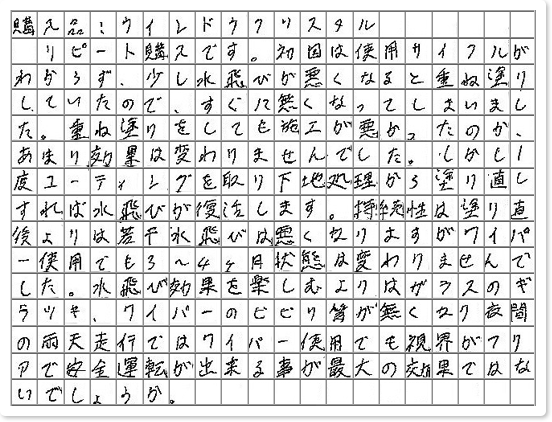 購入品:ウインドウクリスタル
リピート購入です。初回は使用サイクルが
わからず、少し水飛びが悪くなると重ね塗り
していたので、すぐに無くなってしまいまし
た。重ね塗りをしても施工が悪かったのか、
あまり効果は変わりませんでした。しかし1
度コーティングを取り下地処理から塗り直し
すれば水飛びが復活します。持続性は塗り直
後よりは若干水飛びは悪くなりますがワイパ
ー使用でも3~4ヶ月状態は変わりませんで
した。水飛び効果を楽しむよりはガラスのギ
ラツキ、ワイパーのビビリ音が無くなり夜間
の雨天走行ではワイパー使用でも視界がクリ
アで安全運転が出来る事が最大の効果ではな
いでしょうか。